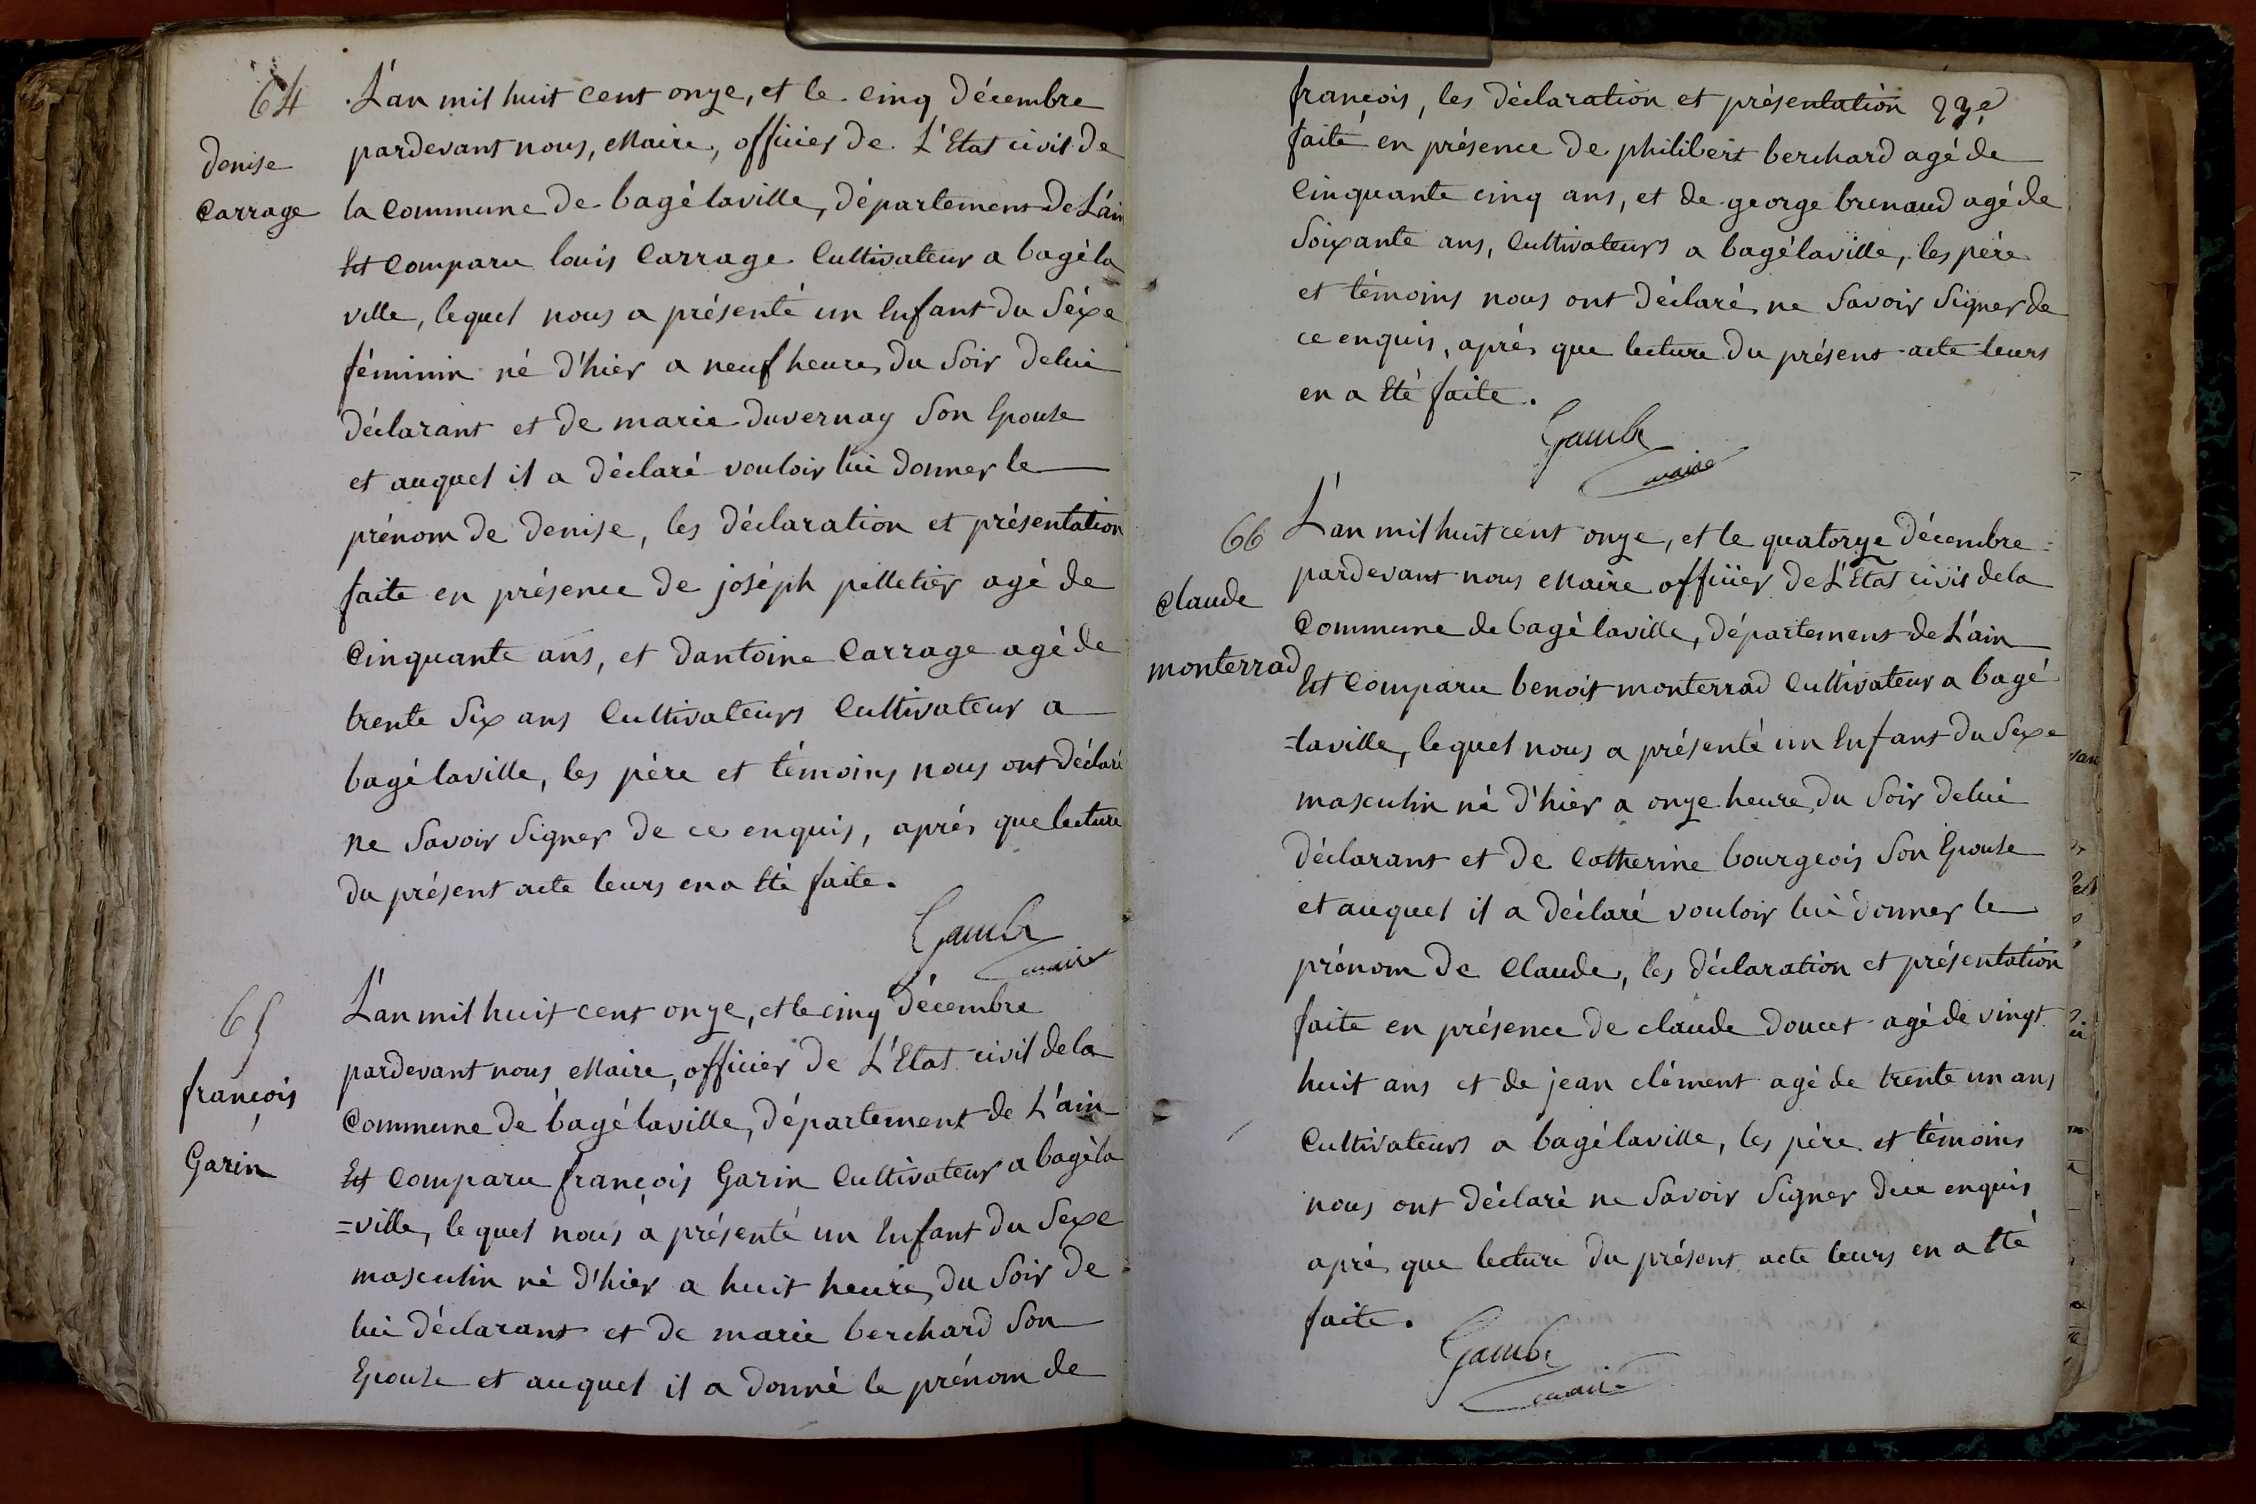 64
denise
Carrage
L'an mil huit cent onze, et le cinq décembre
pardevant nous, Maire, officier de L'Etat civil de
la Commune de bagé laville, département de L'ain
Est Comparu louis Carrage Cultivateur a bagé la
ville, lequel nous a présenté un Enfant du Séxe
féminin né d'hier a neuf heures du Soir de lui
déclarant et de marie duvernay Son Epouse
et auquel il a déclaré vouloir lui donner le
prénom de denise, les déclaration et présentation
faite en présence de joséph pelletier agé de
Cinquante ans, et dantoine Carrage agé de
trente Six ans Cultivateurs Cultivateur a
bagé laville, les père et témoins nous ont déclaré
ne Savoir Signer de ce enquis, après que lecture
du présent acte leurs en a Eté faite.
Gambe
maire
65
françois
Garin
L'an mil huit cent onze, et le cinq décembre
pardevant nous Maire, officier de L'Etat civil de la
Commune de bagé laville, département de L'ain
Est Comparu françois Garin Cultivateur a bagé la
=ville, lequel nous a présenté un Enfant du Sexe
masculin né d'hier a huit heures du Soir de
lui déclarant et de marie berchard Son
Epouse et auquel il a donné le prénom de
françois, les déclaration et présentation
faite en présence de philibert berchard agé de
Cinquante cinq ans, et de george brenaud agé de
Soixante ans, Cultivateurs a bagé laville, les père
et témoins nous ont déclaré ne Savoir Signer de
ce enquis, après que lecture du présent acte leurs
en a Eté faite.
Gambe
maire
66
Claude
monterrad
L'an mil huit cent onze, et le quatorze décembre
pardevant nous Maire officier de L'Etat civil de la
Commune de bagé laville, département de L'ain
Est Comparu benoit monterrad Cultivateur a bagé
=laville, lequel nous a présenté un Enfant du Sexe
masculin né d'hier a onze heures du Soir de lui
déclarant et de Catherine bourgeois Son Epouse
et auquel il a déclaré vouloir lui donner le
prénom de Claude, les déclaration et présentation
faite en présence de claude doucet agé de vingt
huit ans et de jean clément agé de trente un ans
Cultivateurs a bagé laville, les père et témoins
nous ont déclaré ne Savoir Signer de ce enquis
après que lecture du présent acte leurs en a Eté
faite.
Gambe
maire